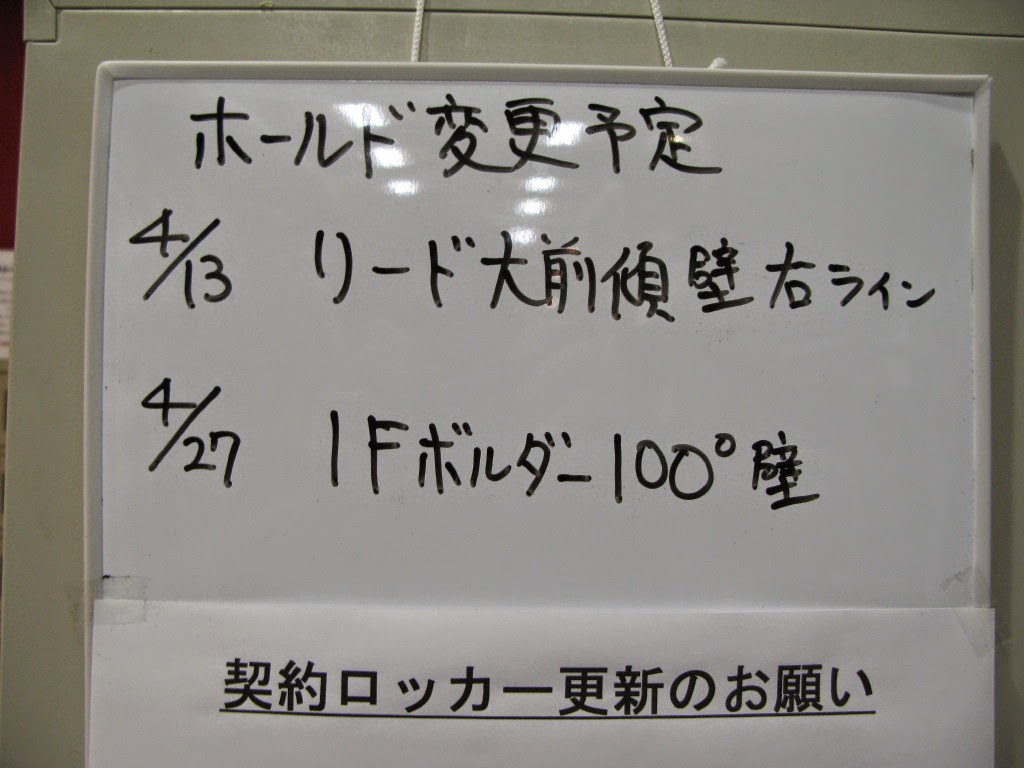 ホールド変更予定
4/13 リード大前傾壁右ライン
4/27 1Fボルダー100°壁
契約ロッカー更新のお願い